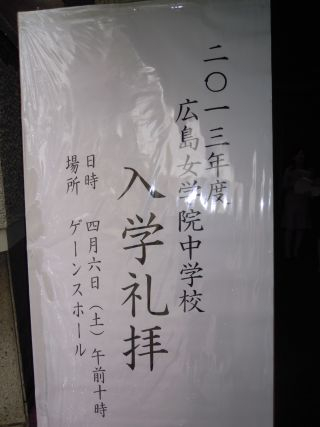 二〇一三年度
広島女学院中学校
入学礼拝
日時 四月六日（土）午前十時
場所 ゲーンスホール